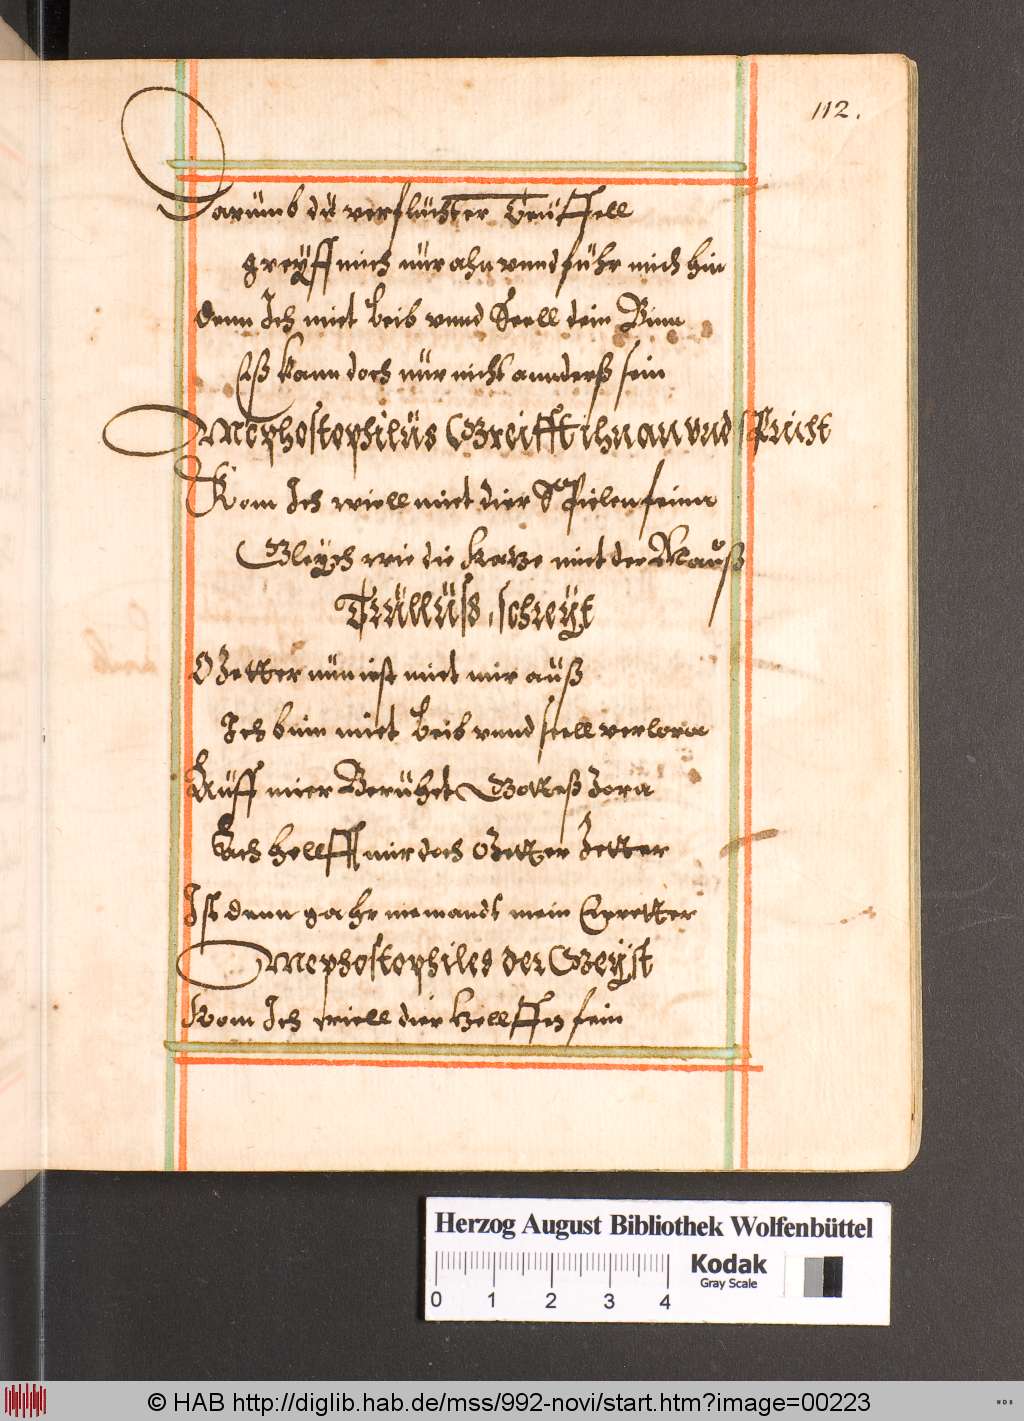 112.
Darümb dü verflüchter Teüffell
greyff mich nür ahn vnnd führ mich hin
denn Ich miet Leib vnnd Seell dein Binn
Eß kann doch nür nicht annderß sein
Mephostophilüs Greifft ihn an vnd spricht
Kom Ich wiell miet dier Spielen feinn
Gleych wie die Katze miet der Maüß
Trüllüs, schreyt
O Zetter nün ist miet mir aüß
Ich binn miet Leib vnnd seell verlorn
Aüff mier Berühet Gotteß Zorn
Ach hellff mir doch O Zetter Zetter
Ist denn gahr niemandt mein Erretter
Mephostophiles der Geyst
Kom Ich wiell dier hellffen fein
Herzog August Bibliothek Wolfenbüttel
0 1 2 3 4
Kodak
Gray Scale
© HAB http://diglib.hab.de/mss/992-novi/start.htm?image=00223